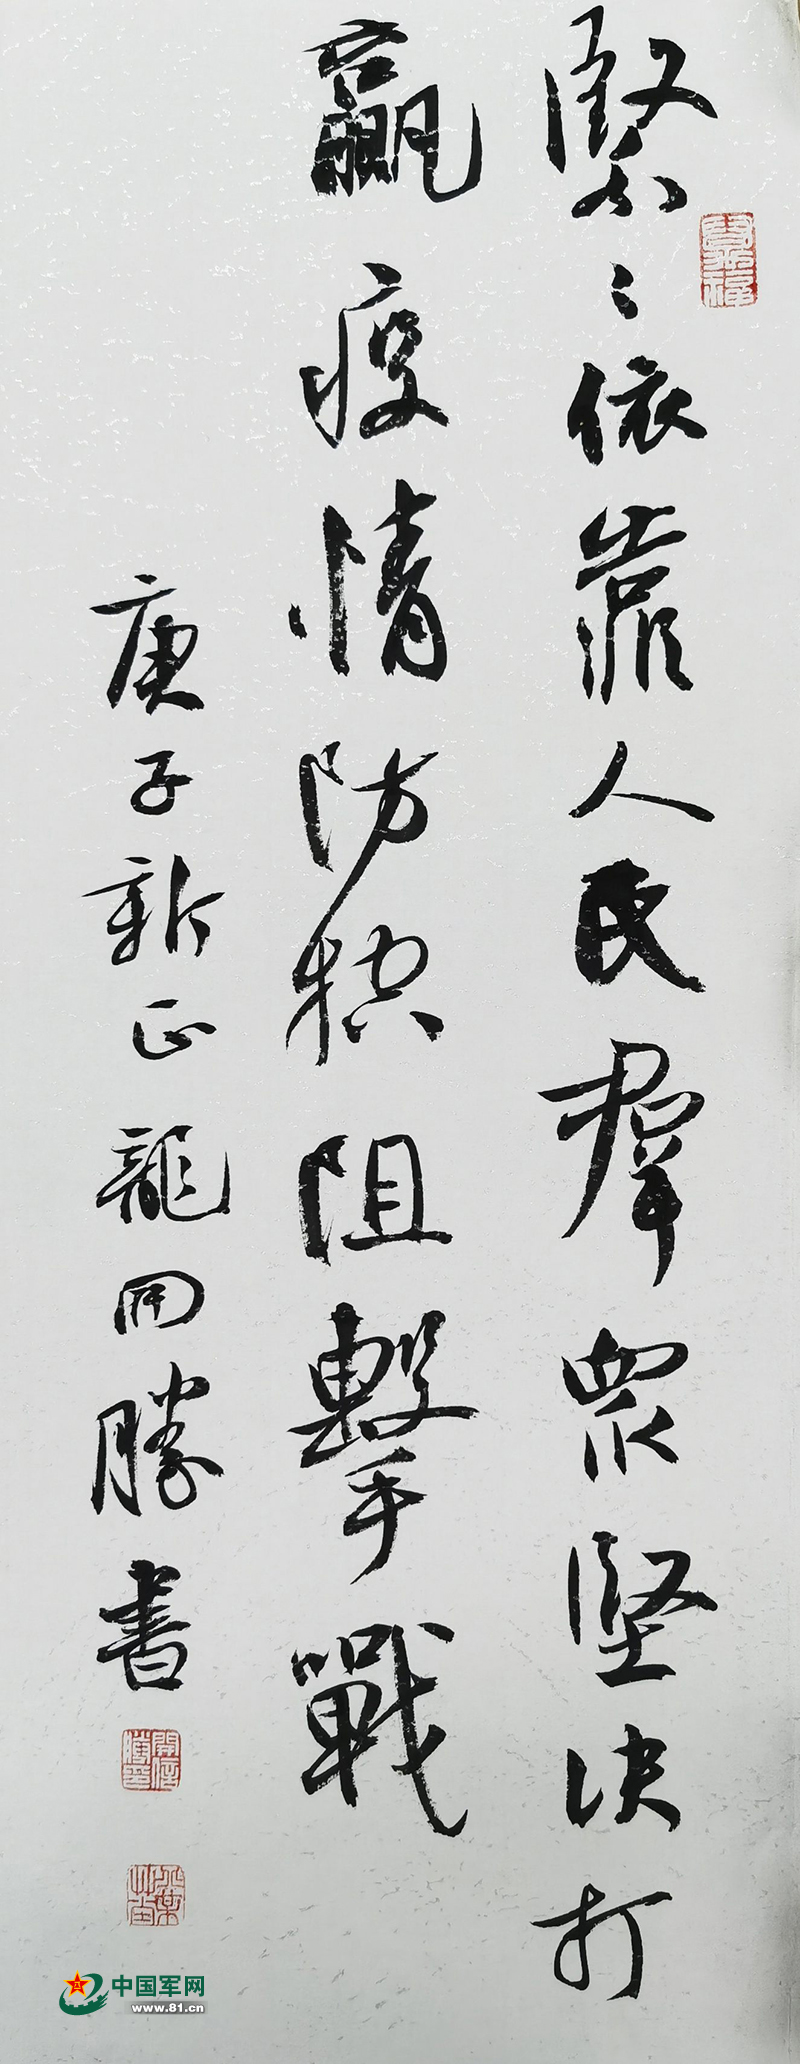 緊〻依靠人民群眾堅决打
贏疫情防控阻擊戰
庚子新正龍開勝書
中国军网
www.81.cn